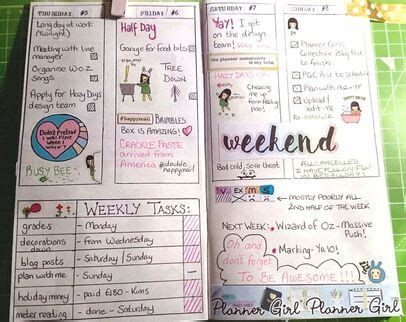 THURSDAY #5
Long day at work
(Twilight)
Meeting with line
manager
Organise W.O.Z
Songs
Apply for Hazy Days
design team
Didn't Pretend
I WAS FINE
WHEN I
WASN'T
BUSY BEE
FRIDAY #6
Half Day
Garage for food bits
TREE
DOWN
#happymail
BRIMBLES
BOX IS AMAZING!
CRACKLE PASTE
arrived from
America
#double
happymail
WEEKLY TASKS:
graders - Monday
decorations down - from Wednesday
blog posts - Saturday / Sunday
plan with me - Sunday
holiday money - paid £180 - Kims
meter reading - done - Saturday
SATURDAY #7
YAY! I got
on the design
team!
the planner community
is my tribe
HAZY DAYS
Cheering
me up
from feeling
poo!
SUNDAY #8
Planner Girls
Collective Blog Post
to finish
PGC Post to schedule
Plan with me - YE
Upload /
edit - YE
weekend
Bad cold, sore throat
ALL CANCELLED
MOSTLY POORLY ALL
2ND HALF OF THE WEEK
NEXT WEEK: Wizard of Oz - Massive
Push!
Marking - Yr 10!
Oh and
dont forget
TO BE AWESOME!!!
Planner Girl Planner Girl